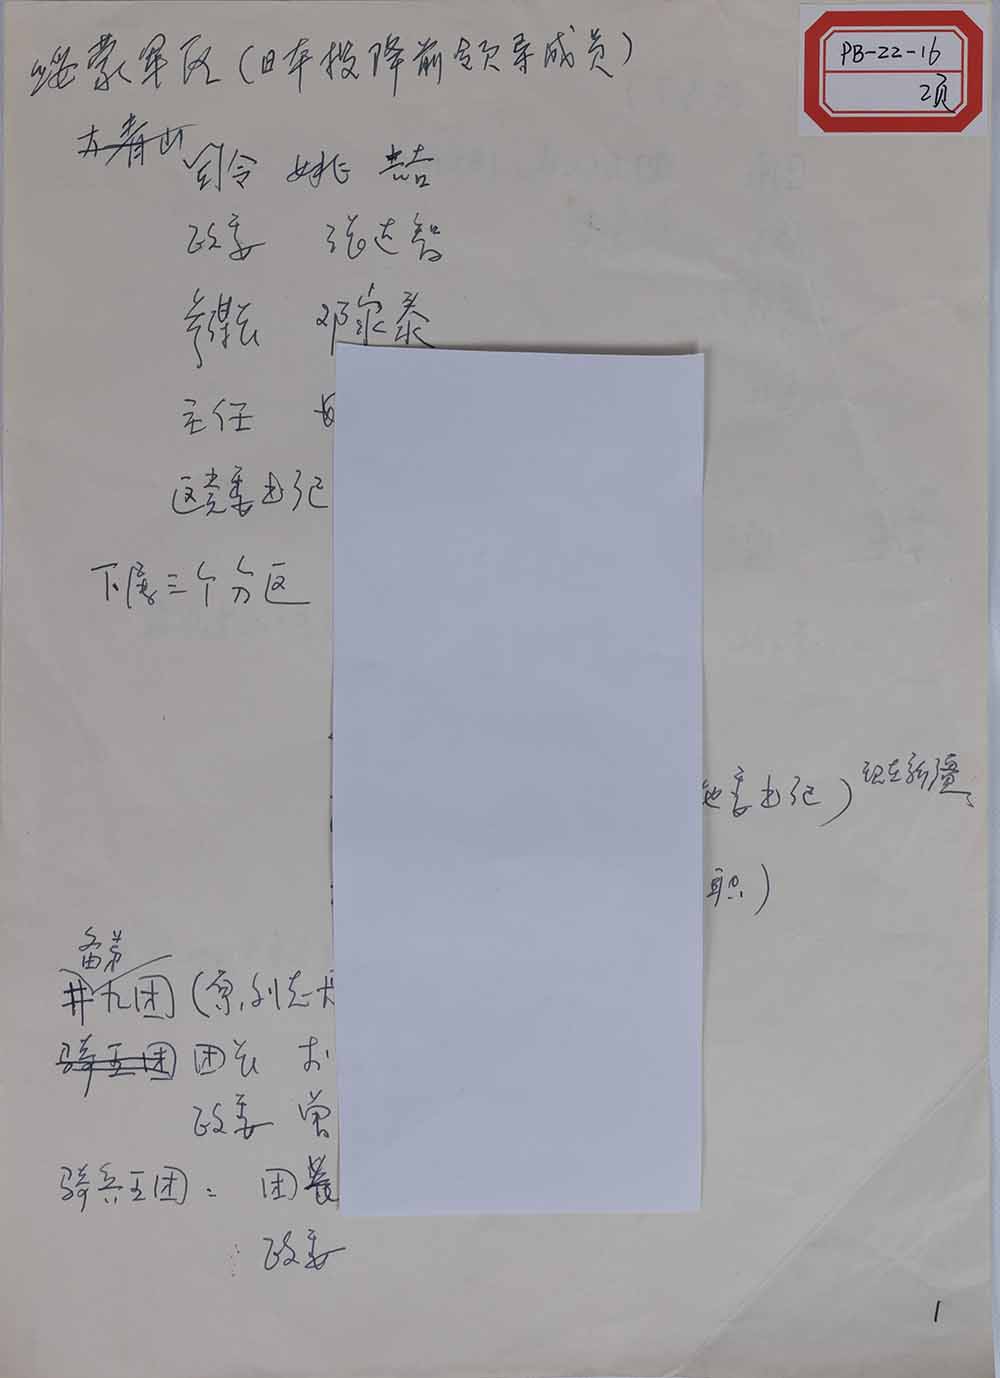 PB-22-16
2页
绥蒙军区(日本投降前领导成员)
大青山
司令 姚喆
政委 张达智
参谋长 邓家泰
主任
区党委书记
下属三个分区
地委书记)现在新疆
职)
备第
廿九团(原,刘志
骑五团 团长
政委 曾
骑兵五团: 团长
政委
1